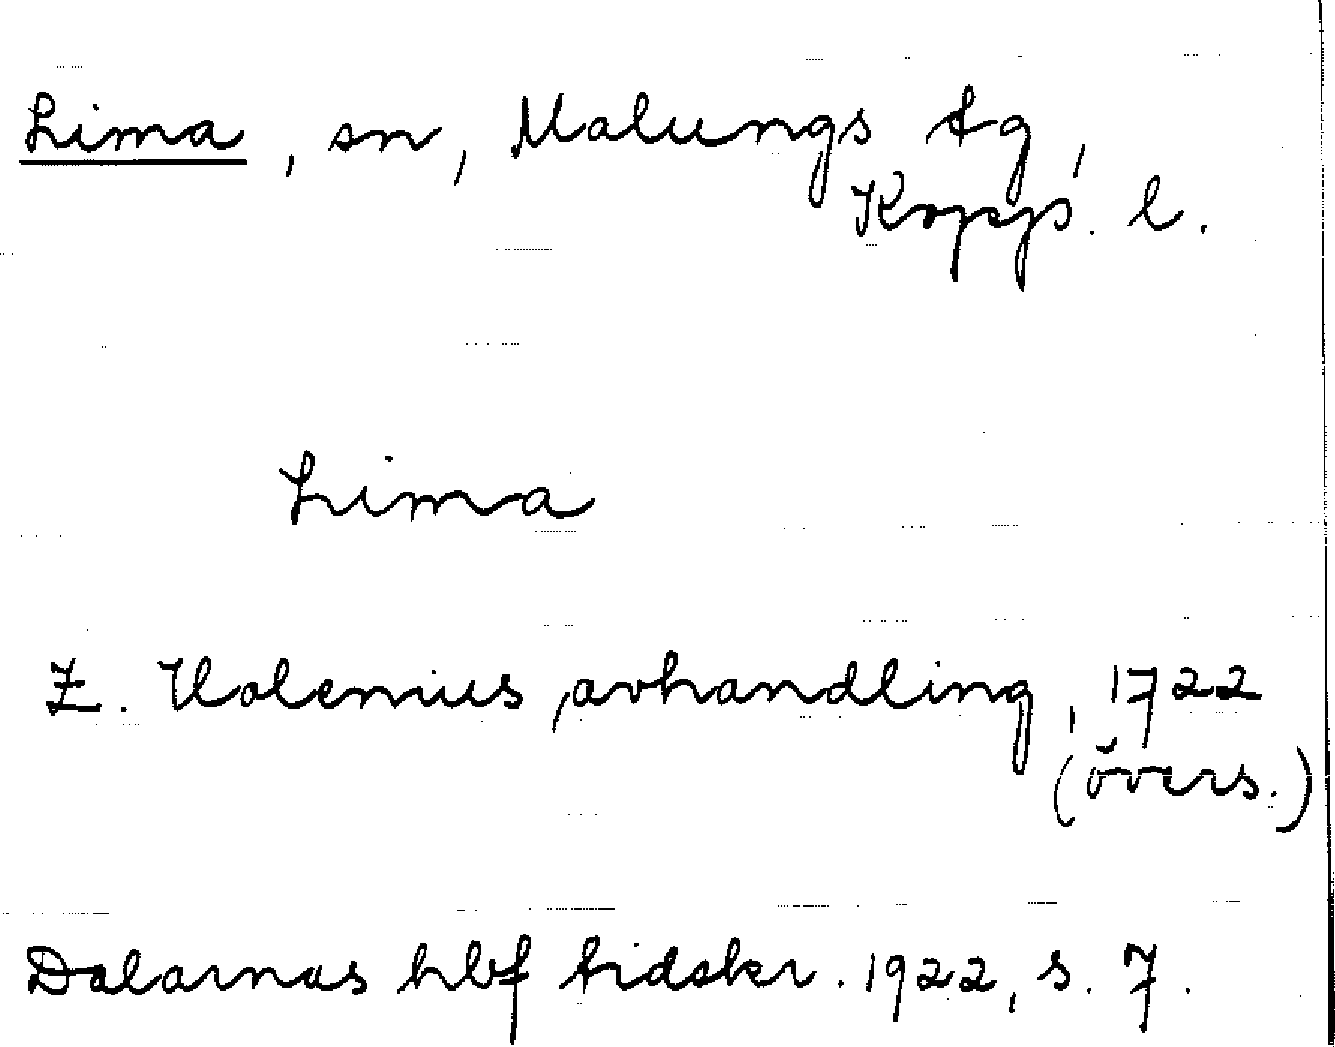 Lima, sn, Malungs tg,
Kopp. l.
Lima
Z. Holenius, avhandling, 1722
(övers.)
Dalarnas hbf tidskr. 1922, s. 7.